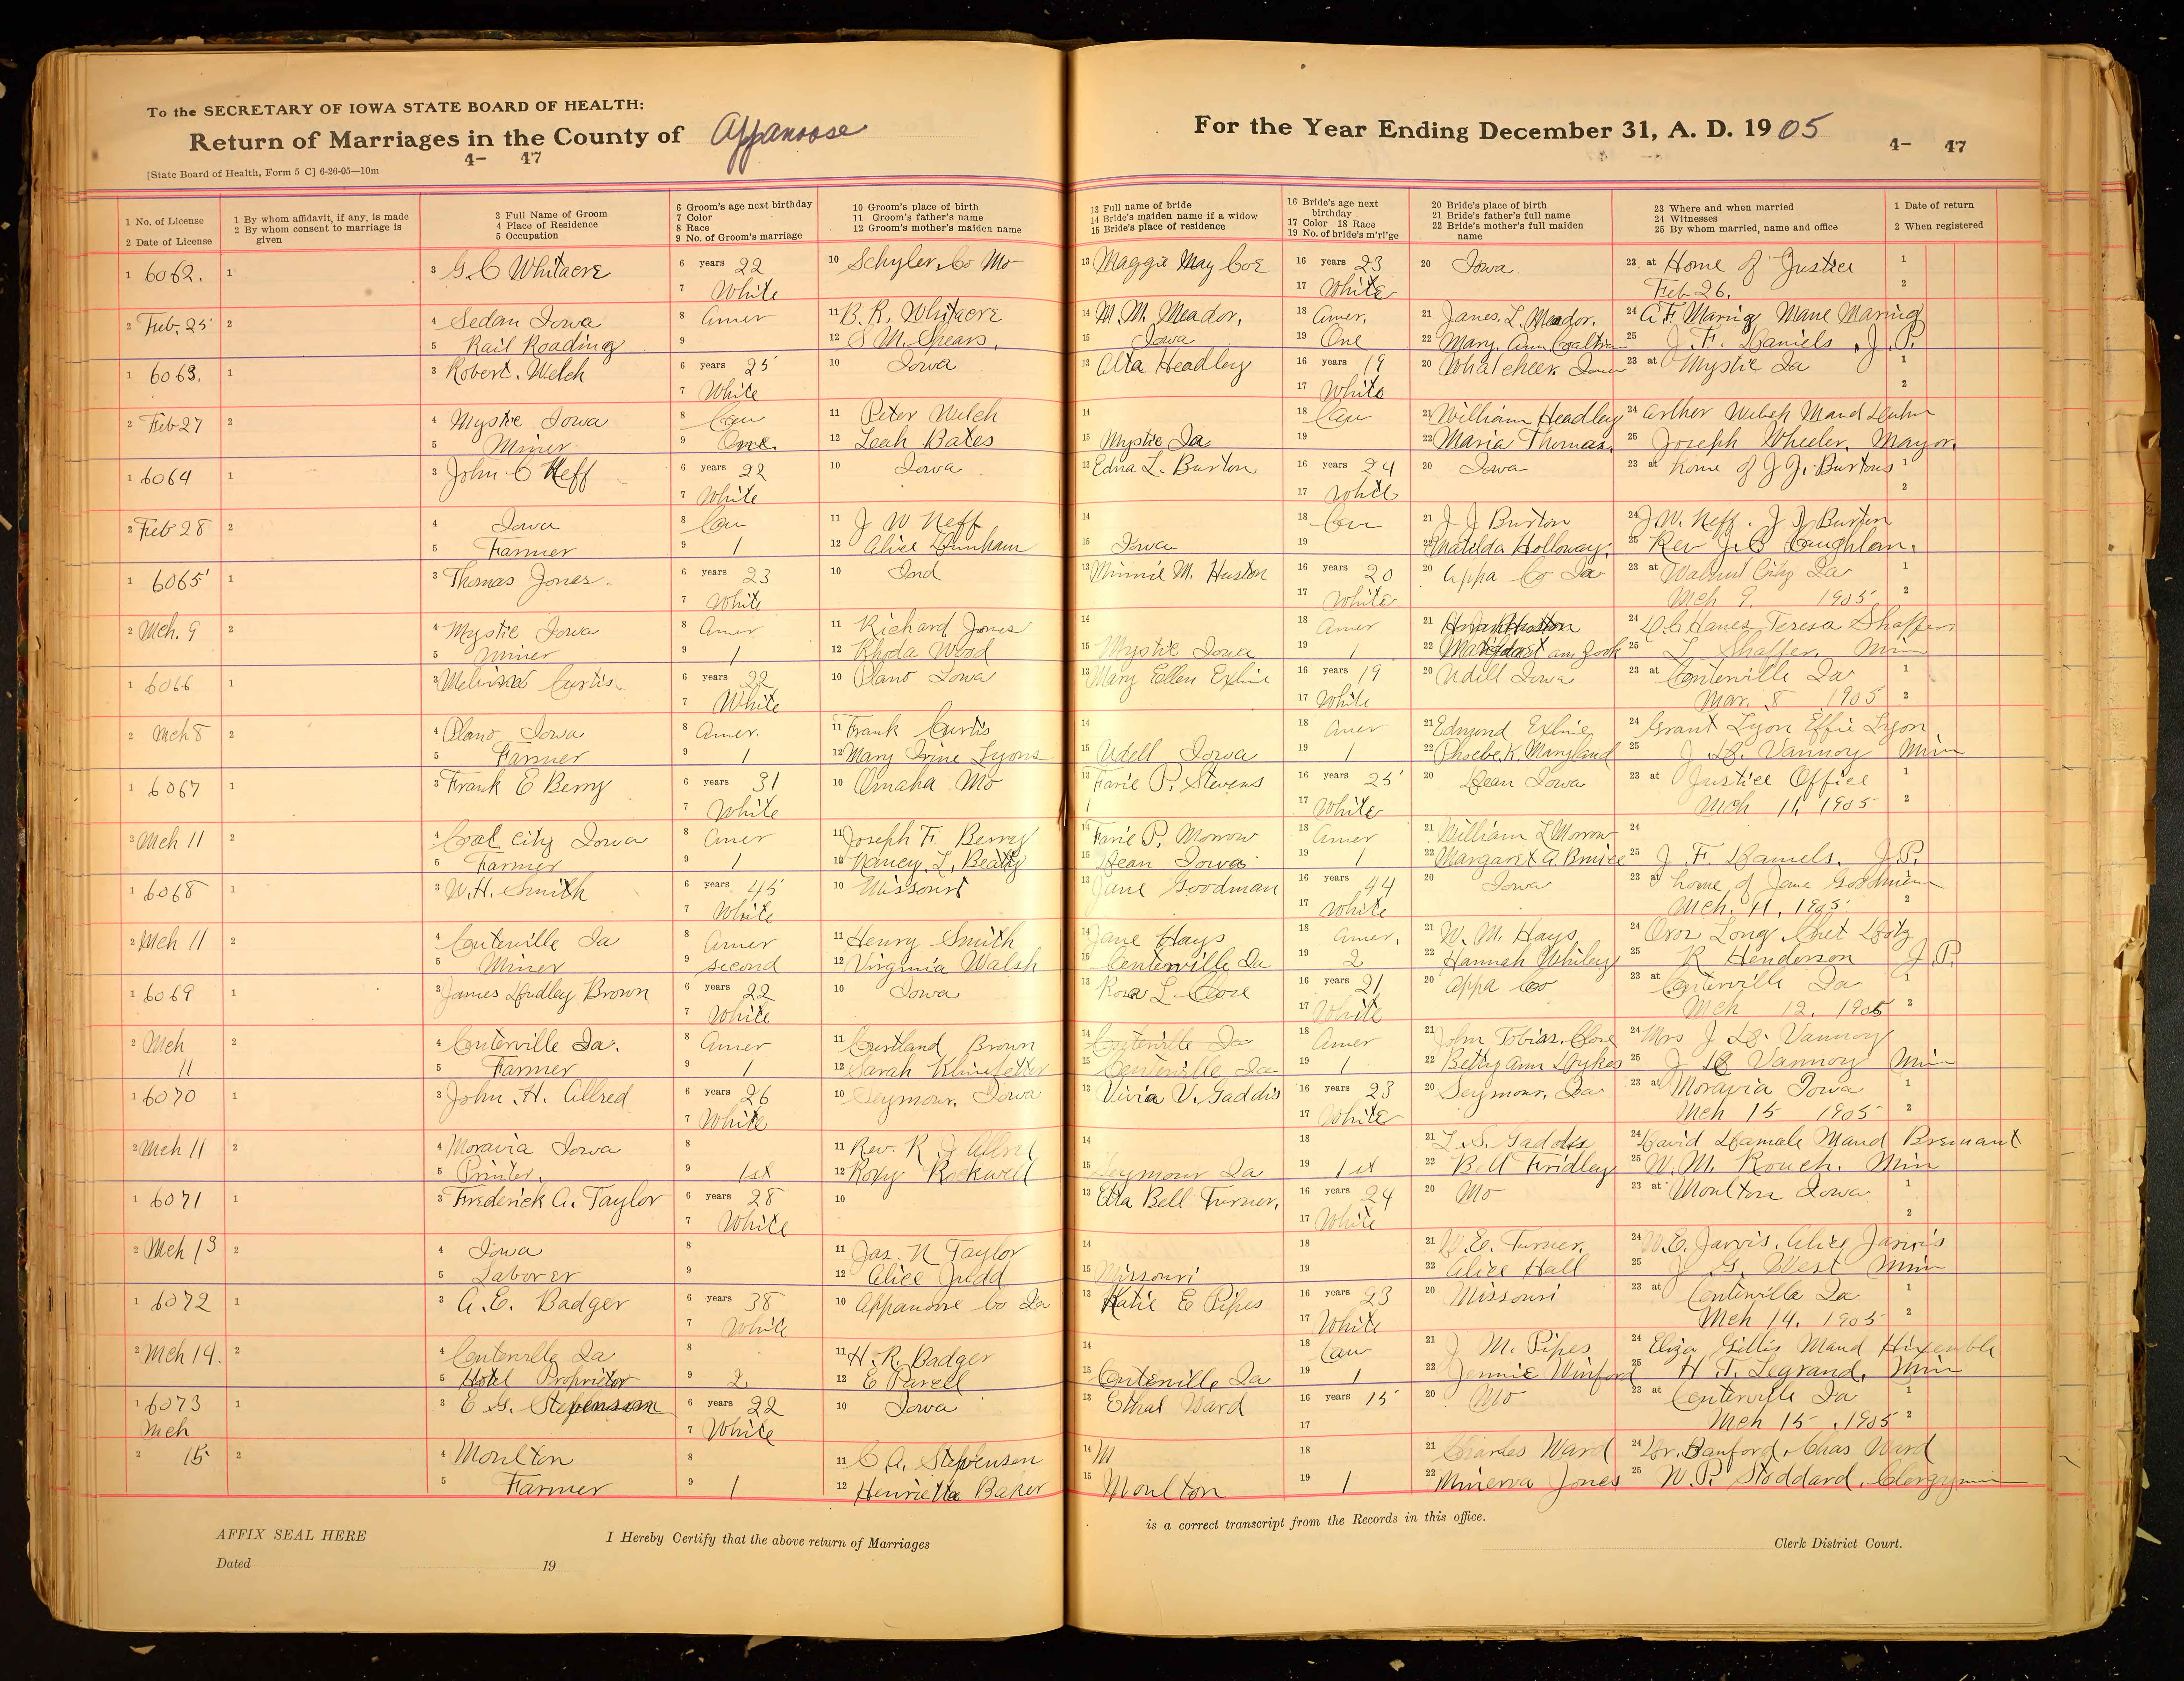 To the SECRETARY OF IOWA STATE BOARD OF HEALTH:
Return of Marriages in the County of Appanoose
4- 47
[State Board of Health, Form 5 C] 6-26-05—10m
For the Year Ending December 31, A. D. 1905
4- 47
1 No. of License
2 Date of License
1 By whom affidavit, if any, is made
2 By whom consent to marriage is given
3 Full Name of Groom
4 Place of Residence
5 Occupation
6 Groom's age next birthday
7 Color
8 Race
9 No. of Groom's marriage
10 Groom's place of birth
11 Groom's father's name
12 Groom's mother's maiden name
13 Full name of bride
14 Bride's maiden name if a widow
15 Bride's place of residence
16 Bride's age next birthday
17 Color 18 Race
19 No. of bride's m'ri'ge
20 Bride's place of birth
21 Bride's father's full name
22 Bride's mother's full maiden name
23 Where and when married
24 Witnesses
25 By whom married, name and office
1 Date of return
2 When registered
1 6062. 1 3 G. C Whitacre 6 years 22 10 Schyler Co Mo 13 Maggie May Coe 16 years 23 20 Iowa 23 at Home of Justice 1
7 White 17 White Feb 26. 2
2 Feb. 25 2 4 Sedan Iowa 8 Amer 11 B. R. Whitacre 14 M. M. Meador, 18 Amer. 21 James. L. Meador. 24 A F Maring Mane Maring
5 Rail Roading 9 12 S M. Spears, 15 Iowa 19 One 22 Mary Ann 25 J. F. Daniels, J. P.
1 6063. 1 3 Robert. Welch 6 years 25 10 Iowa 13 Alta Headley 16 years 19 20 Whatcheer Iowa 23 at Mystic Ia 1
7 White 17 White 2
2 Feb 27 2 4 Mystic Iowa 8 Cau 11 Peter Welch 14 18 Cau 21 William Headley 24 Arther Welch Maud
5 Miner 9 One 12 Leah Bates 15 Mystic Ia 19 22 Maria Thomas. 25 Joseph Wheeler, Mayor.
1 6064 1 3 John C Neff 6 years 22 10 Iowa 13 Edna L. Burton 16 years 24 20 Iowa 23 at home of J J. Burtons 1
7 White 17 White 2
2 Feb 28 2 4 Iowa 8 Cau 11 J W Neff 14 18 Cau 21 J J Burton 24 J. W. Neff. J J Burton
5 Farmer 9 1 12 Alice Dunham 15 Iowa 19 22 Matilda Holloway. 25 Rev J. C Coughlan.
1 6065 1 3 Thomas Jones. 6 years 23 10 Ind 13 Minnie M. Huston 16 years 20 20 Appa Co Ia 23 at Walnut City Ia 1
7 White 17 White. Mch 9. 1905 2
2 Mch. 9 2 4 Mystic Iowa 8 Amer 11 Richard Jones 14 18 Amer 21 Huston 24 Teresa Shaffer
5 Miner 9 1 12 Rhoda Wood 15 Mystic Iowa 19 1 22 Ann 25 L Shaffer, Min
1 6066 1 3 Curtis. 6 years 22 10 Plano Iowa 13 Mary Ellen Exline 16 years 19 20 Udell Iowa 23 at Centerville Ia 1
7 White 17 White Mar. 8 1905 2
2 Mch 8 2 4 Plano Iowa 8 Amer. 11 Frank Curtis 14 18 Amer 21 Edmond Exline 24 Grant Lyon Effie Lyon
5 Farmer 9 1 12 Mary Irine Lyons 15 Udell Iowa 19 1 22 Phoebe K. Maryland 25 J D. Vannoy Min
1 6067 1 3 Frank E Berry 6 years 31 10 Omaha Mo 13 Farie P. Stevens 16 years 25 20 Dean Iowa 23 at Justice Office 1
7 White 17 White Mch 11, 1905 2
2 Mch 11 2 4 Coal City Iowa 8 Amer 11 Joseph F. Berry 14 Farie P. Morrow 18 Amer 21 William L Morrow 24
5 Farmer 9 1 12 Nancy. L. Beatty 15 Dean Iowa 19 1 22 Margaret A Bruice 25 J. F. Daniels. J.P.
1 6068 1 3 W. H. Smith 6 years 45 10 Missouri 13 Jane Goodman 16 years 44 20 Iowa 23 at home of Jane Goodman
7 White 17 White Mch. 11, 1905 2
2 Mch 11 2 4 Centerville Ia 8 Amer 11 Henry Smith 14 Jane Hays 18 Amer. 21 W. M. Hays 24 Oroz Long, Chet
5 Miner 9 second 12 Virginia Walsh 15 Centerville Ia 19 2 22 Hannah Whiley 25 R Henderson J.P.
1 6069 1 3 James Dudley Brown 6 years 22 10 Iowa 13 Rosa L Close 16 years 21 20 Appa Co 23 at Centerville Ia 1
7 White 17 White Mch 12. 1905 2
2 Mch 2 4 Centerville Ia. 8 Amer 11 Curtland Brown 14 Centerville Ia 18 Amer 21 John Tobias. Close 24 Mrs J D. Vannoy
11 5 Farmer 9 1 12 Sarah 15 Centerville Ia 19 1 22 Betty Ann Dykes 25 J D Vannoy Min
1 6070 1 3 John. H. Allred 6 years 26 10 Seymour, Iowa 13 Vivia V. Gaddis 16 years 23 20 Seymour, Ia 23 at Moravia Iowa 1
7 White 17 White Mch 15 1905 2
2 Mch 11 2 4 Moravia Iowa 8 11 Rev. R. J Allred 14 18 21 L. S. Gaddis 24 David Damale Maud
5 Printer. 9 1st 12 Roxy Rockwell 15 Seymour Ia 19 1st 22 Bell Fridley 25 W. M. Rouch. Min
1 6071 1 3 Frederick A. Taylor 6 years 28 10 13 Etta Bell Turner, 16 years 24 20 Mo 23 at Moulton Iowa. 1
7 White 17 White 2
2 Mch 13 2 4 Iowa 8 11 Jas. N Taylor 14 18 21 W. E. Turner, 24 W. E. Jarvis. Alice Jarvis
5 Laborer 9 12 Alice Judd 15 Missouri 19 22 Alice Hall 25 J G. West Min
1 6072 1 3 A. E. Badger 6 years 38 10 Appanoose Co Ia 13 Katie E Pipes 16 years 23 20 Missouri 23 at Centerville Ia 1
7 White 17 White Mch 14, 1905 2
2 Mch 14. 2 4 Centerville Ia 8 11 H. R. Badger 14 18 Cau 21 J M. Pipes 24 Eliza Gillis Maud
5 Hotel Proprietor 9 2 12 E Pavell 15 Centerville Ia 19 1 22 Jennie Winford 25 H T. Legrand, Min
1 6073 1 3 E G. Stephenson 6 years 22 10 Iowa 13 Ethal Ward 16 years 15 20 Mo 23 at Centerville Ia 1
Mch 7 White 17 Mch 15 , 1905 2
2 15 2 4 Moulton 8 11 C A. Stephenson 14 M 18 21 Charles Ward 24 Dr. Banford, Chas Ward
5 Farmer 9 1 12 Henrietta Baker 15 Moulton 19 1 22 Minerva Jones 25 W. P. Stoddard, Clergyman
AFFIX SEAL HERE
I Hereby Certify that the above return of Marriages
is a correct transcript from the Records in this office.
Dated 19
Clerk District Court.